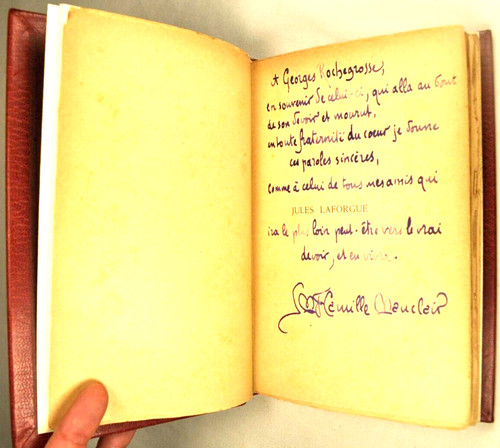 A Georges Rochegrosse,
en souvenir de celui-ci, qui alla au bout
de son devoir et mourut,
en toute fraternité du coeur je donne
ces paroles sincères,
comme à celui de tous mes amis qui
JULES LAFORGUE
ira le plus loin peut-être vers le vrai
devoir, et en vivra.
Camille Mauclair